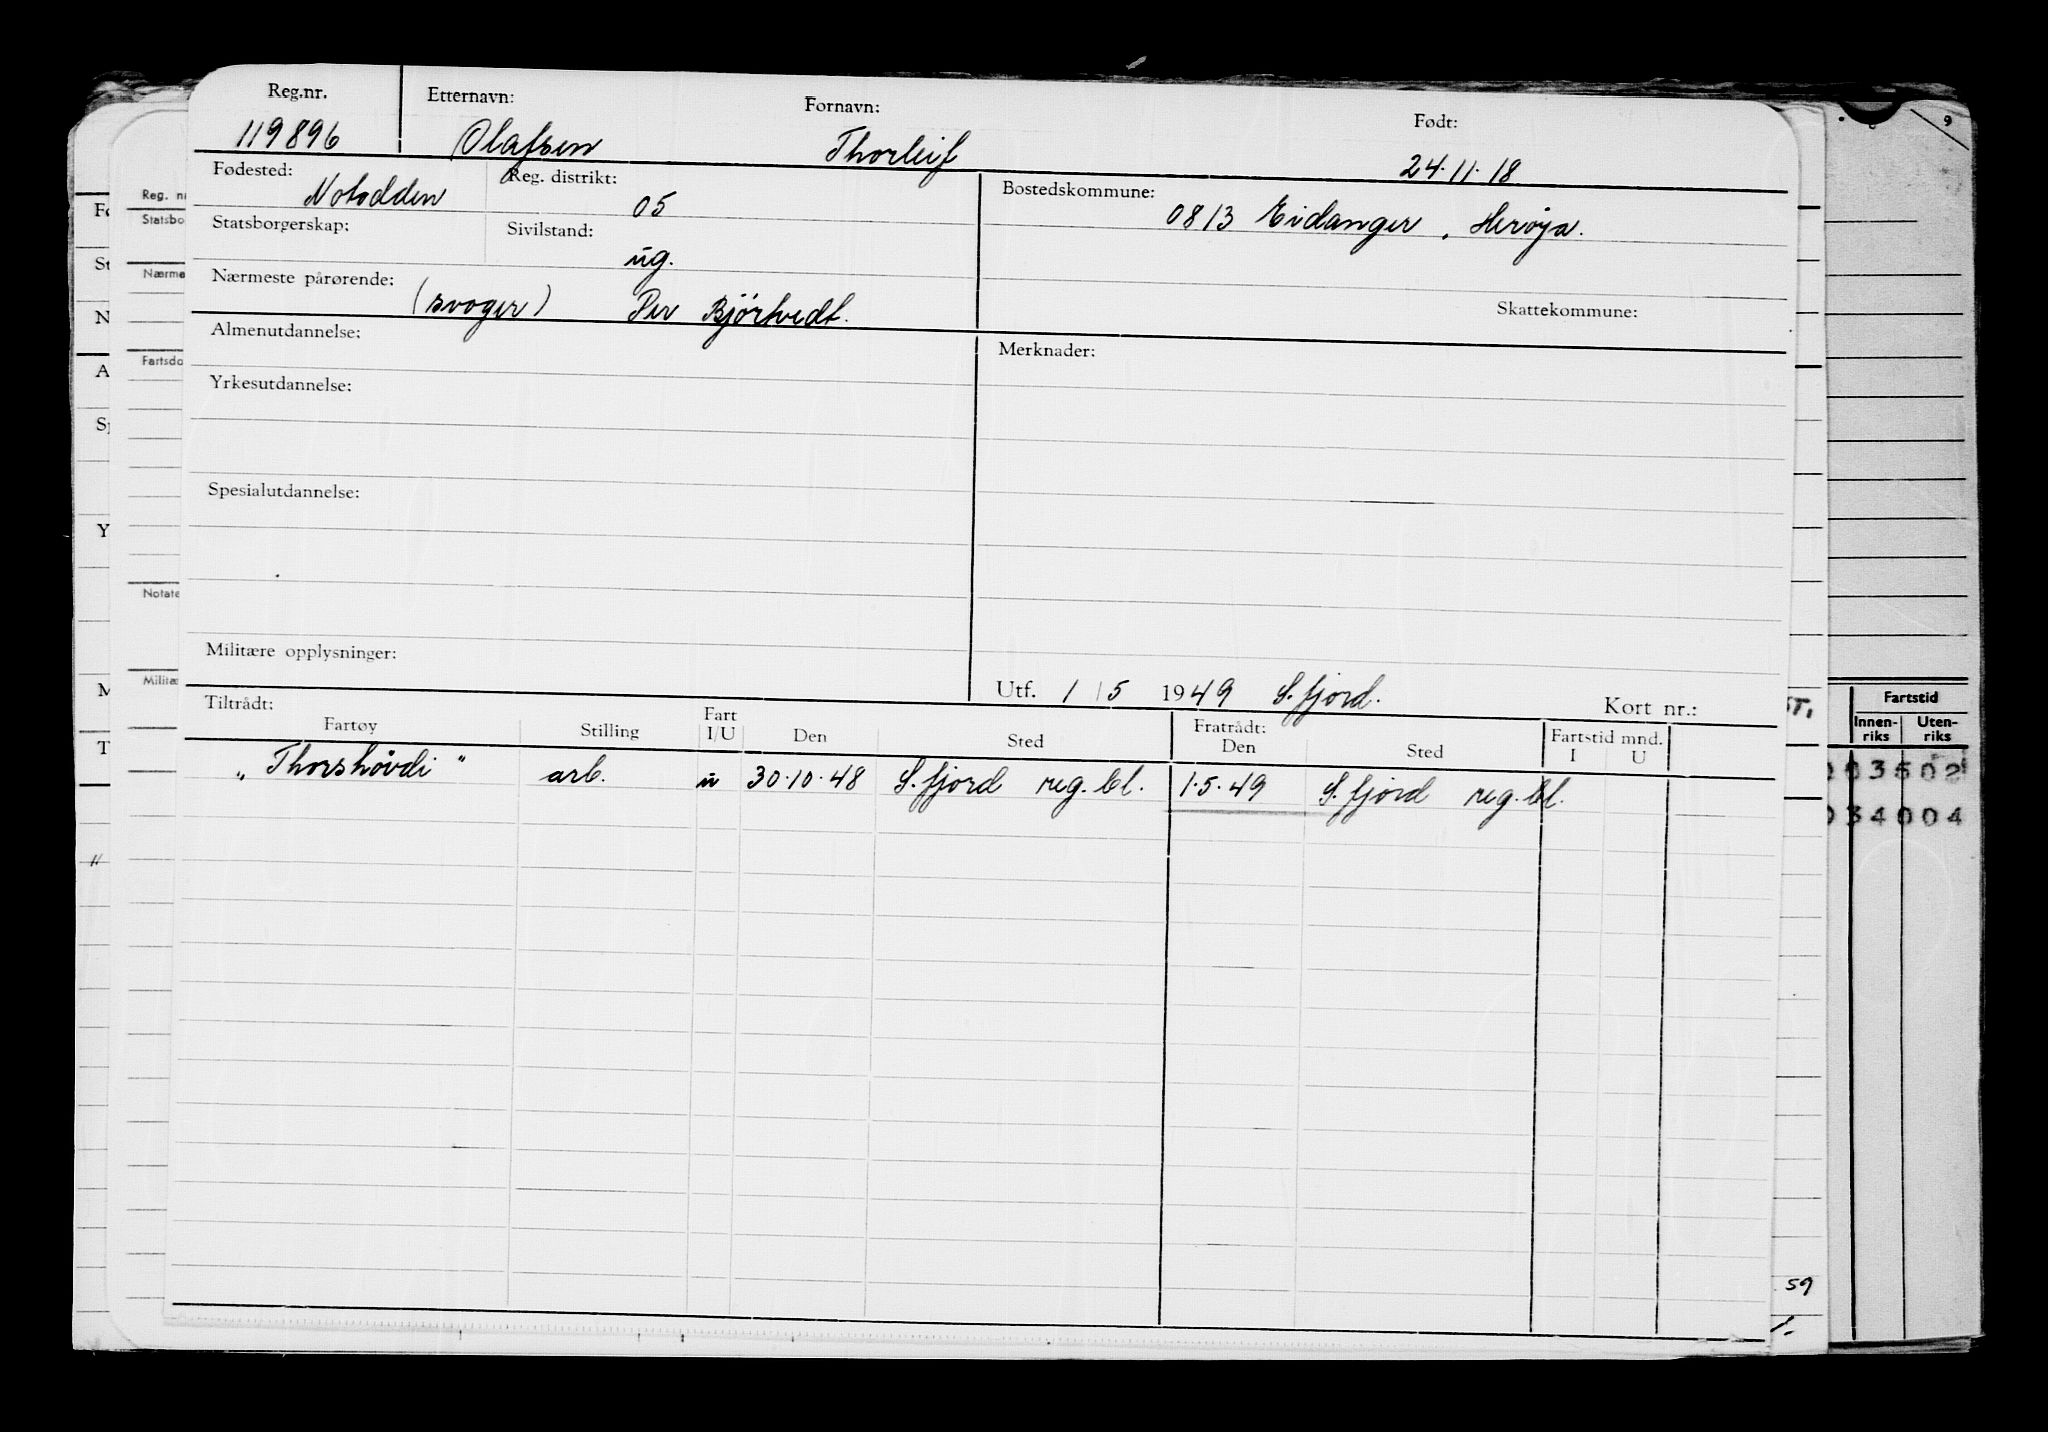 Reg.nr. Etternavn: Fornavn: Født:
119896 Olafsen Thorleif 24.11.18
Fødested: Notodden Reg. distrikt: 05 Bostedskommune: 0813 Eidanger, Herøya.
Statsborgerskap: Sivilstand: ug.
Nærmeste pårørende: (svoger) Per Bjørtvedt. Skattekommune:
Almenutdannelse: Merknader:
Yrkesutdannelse:
Spesialutdannelse:
Militære opplysninger:
Utf. 1/5 1949 S.fjord. Kort nr.:
Tiltrådt: Fratrådt:
Fartøy Stilling Fart I/U Den Sted Den Sted Fartstid mnd. I U
"Thorshövdi" arb. u 30.10.48 S.fjord reg.bl. 1.5.49 S.fjord reg.bl.
Reg. n
Statsbo
Nærme
Fartsdo
Notate
Militæ
Fartstid
Innen-riks Uten-riks
03502
034004
59